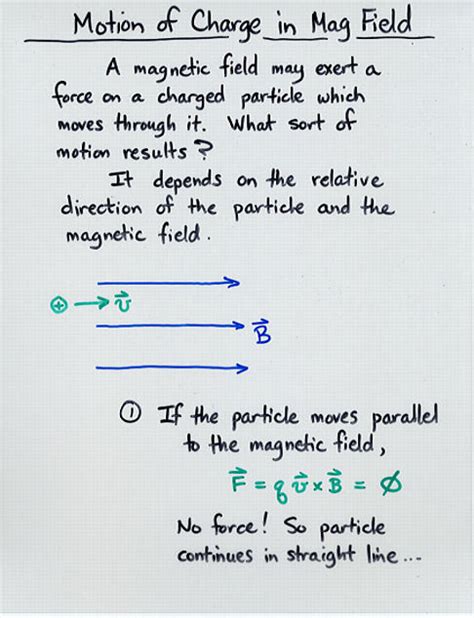 Motion of Charge in Mag Field
A magnetic field may exert a
force on a charged particle which
moves through it. What sort of
motion results?
It depends on the relative
direction of the particle and the
magnetic field.
⊕ → v⃗
B⃗
① If the particle moves parallel
to the magnetic field,
F⃗ = q v⃗ × B⃗ = Ø
No force! So particle
continues in straight line ...